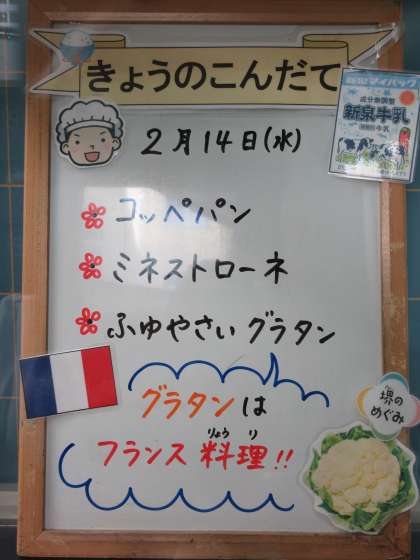 きょうのこんだて
2月14日(水)
コッペパン
ミネストローネ
ふゆやさいグラタン
グラタンは
フランス料理!!
りょうり
マイパック
成分無調整
新泉牛乳
牛乳
堺の
めぐみ